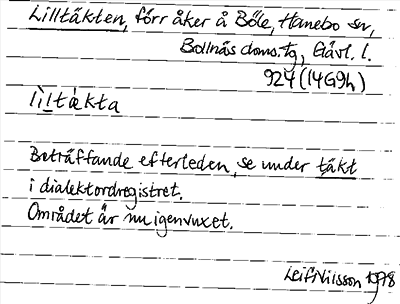 Lilltäkten, förr åker å Böle, Hanebo sn,
Bollnäs doms. tg, Gävl. l.
924 (14G9h)
lìltàkta
Beträffande efterleden, se under täkt
i dialektordregistret.
Området är nu igenvuxet.
Leif Nilsson 1978